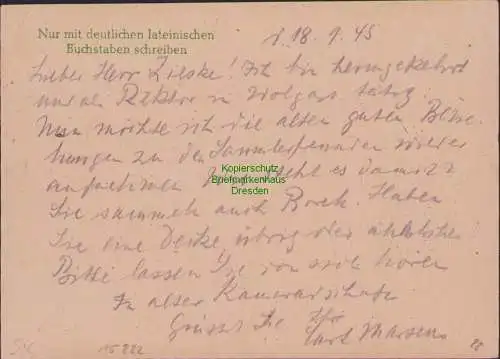 Nur mit deutlichen lateinischen
Buchstaben schreiben
d. 18. 9. 45
Lieber Herr Zieske! Ich bin heimgekehrt
und als Rektor in Wolgast tätig.
Nun möchte ich die alten guten Bezie-
hungen zu den Sammlerfreunden wieder
aufnehmen. Wie steht es damit?
Sie sammeln auch Haben
Sie eine Decke übrig oder ähnliches
Bitte lassen Sie von sich hören
In alter Kameradschaft
Grüsst Sie Ihr
Karl Marsen
Kopierschutz
Briefmarkenhaus
Dresden
15822